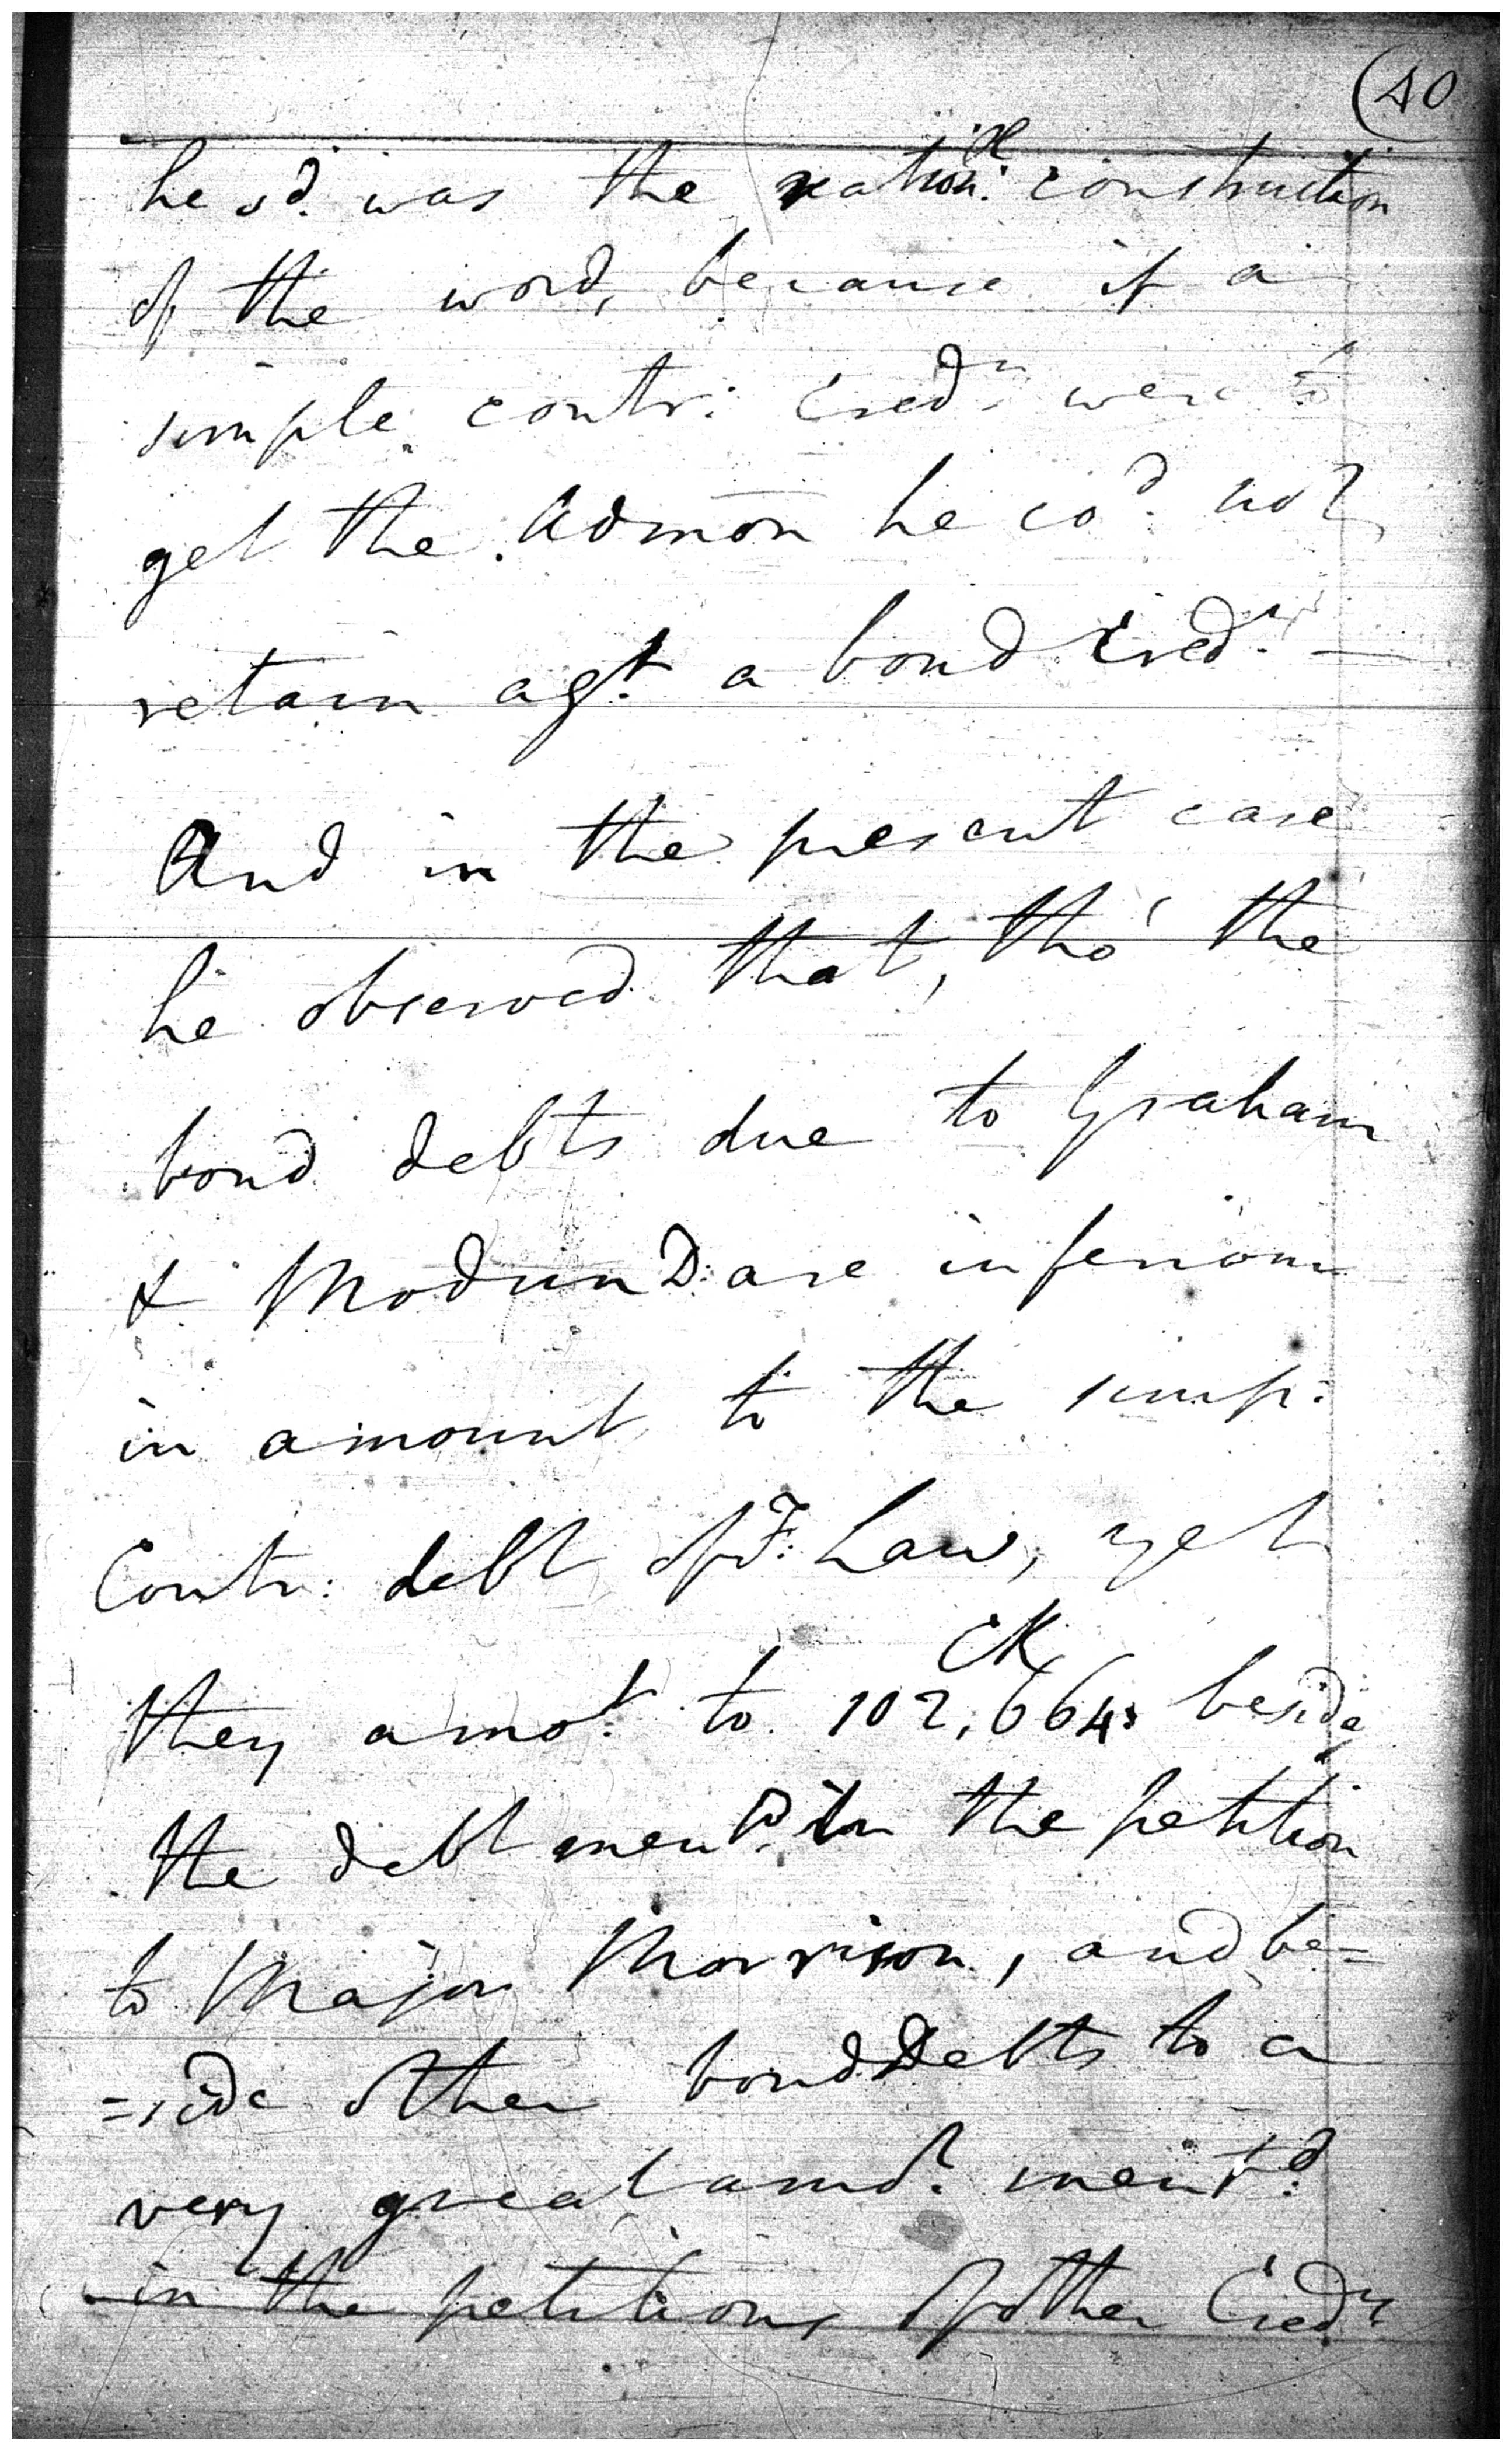 (40
he sd. was the ration.l construction
of the word, because if a
simple contr: Credr. were to
get the Admon he cod. not
retain agt. a bond Credr. —
And in the present case
he observed that, tho' the
bond debts due to Graham
& Modun D: are inferiour
in amount to the simp:
Contr: debt of F: Law, yet
they amot. to CR 102,664: beside
the debt mend. in the petition
to Major Morrison, and be=
=side other bond Debts to a
very great amot. mentd.
in the petitions of other Credrs.